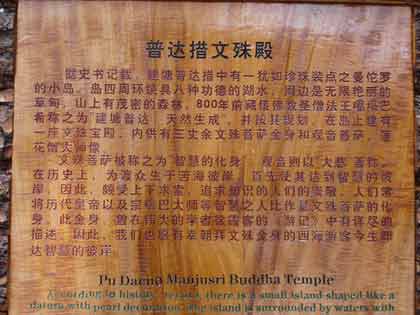 普达措文殊殿
据史书记载，建塘普达措中有一犹如珍珠装点之曼佗罗
的小岛，岛四周环绕具八种功德的湖水，周边是无限艳丽的
草甸，山上有茂密的森林，800年前藏传佛教圣僧法王噶玛巴
希称之为“建塘普达，天然生成”，并按其规划，在岛上建有
一座文殊宝殿，内供有三丈余文殊菩萨金身和观音菩萨、莲
花僧大师像。
文殊菩萨被称之为“智慧的化身”，观音则以“大悲”著称。
在历史上，为渡众生于苦海彼岸，首先使其达到智慧的彼
岸，因此，颇受上下求索，追求知识的人们的崇敬，人们常
将历代皇帝以及宗喀巴大师等智慧之人比作是文殊菩萨的化
身。此金身，曾在伟大的学者徐霞客的《游记》中有详尽的
描述，因此，我们也很有幸朝拜文殊金身的四海游客今生即
达智慧的彼岸。
Pu Dacuo Manjusri Buddha Temple
According to history records, there is a small island shaped like a
datura with pearl decoration. The island is surrounded by waters with